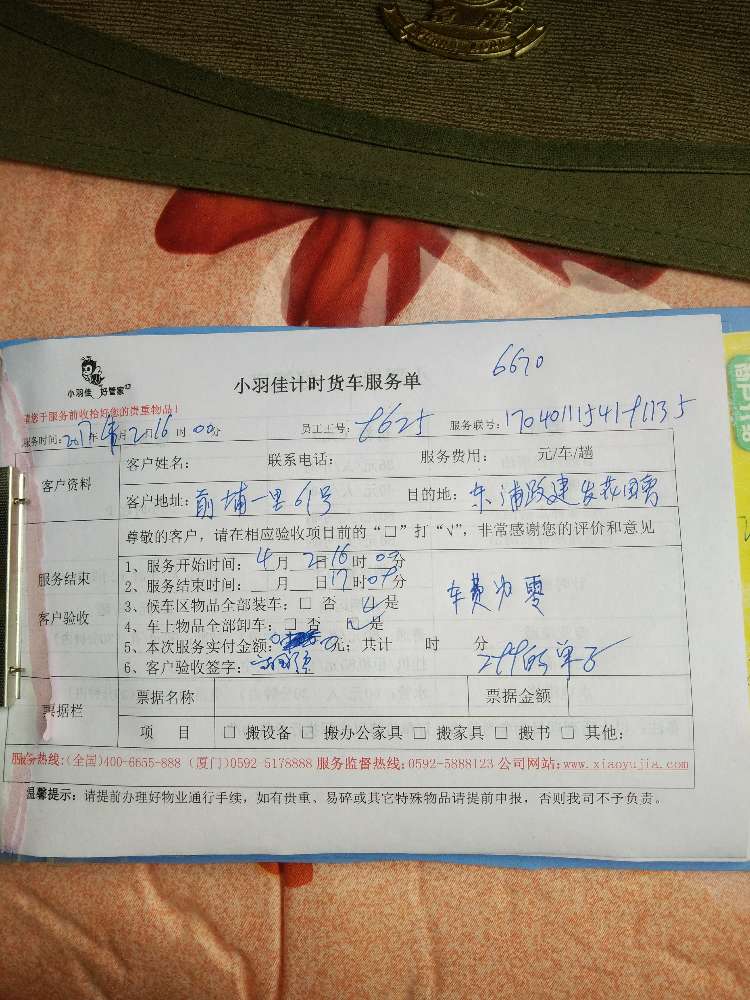 6670
小羽佳 好管家
小羽佳计时货车服务单
请您于服务前收拾好您的贵重物品!
服务时间:2017年4月2日16时00分 员工工号:8625 服务联号:
客户资料
客户姓名: 联系电话: 服务费用: 元/车/趟
客户地址:前埔一里61号 目的地:东浦路建发花园
尊敬的客户,请在相应验收项目前的“□”打“√”,非常感谢您的评价和意见
服务结束
客户验收
1、服务开始时间:4月2日16时00分
2、服务结束时间: 月 日17时09分
3、候车区物品全部装车:□ 否 是
4、车上物品全部卸车:□ 否 是
5、本次服务实付金额:0元;共计 时 分
6、客户验收签字:
车费为零
299的单子
票据栏
票据名称 票据金额
项 目 □ 搬设备 □ 搬办公家具 □ 搬家具 □ 搬书 □ 其他:
服务热线:(全国)400-6655-888 (厦门)0592-5178888 服务监督热线:0592-5888123 公司网站:www.xiaoyujia.com
温馨提示:请提前办理好物业通行手续,如有贵重、易碎或其它特殊物品请提前申报,否则我司不予负责。